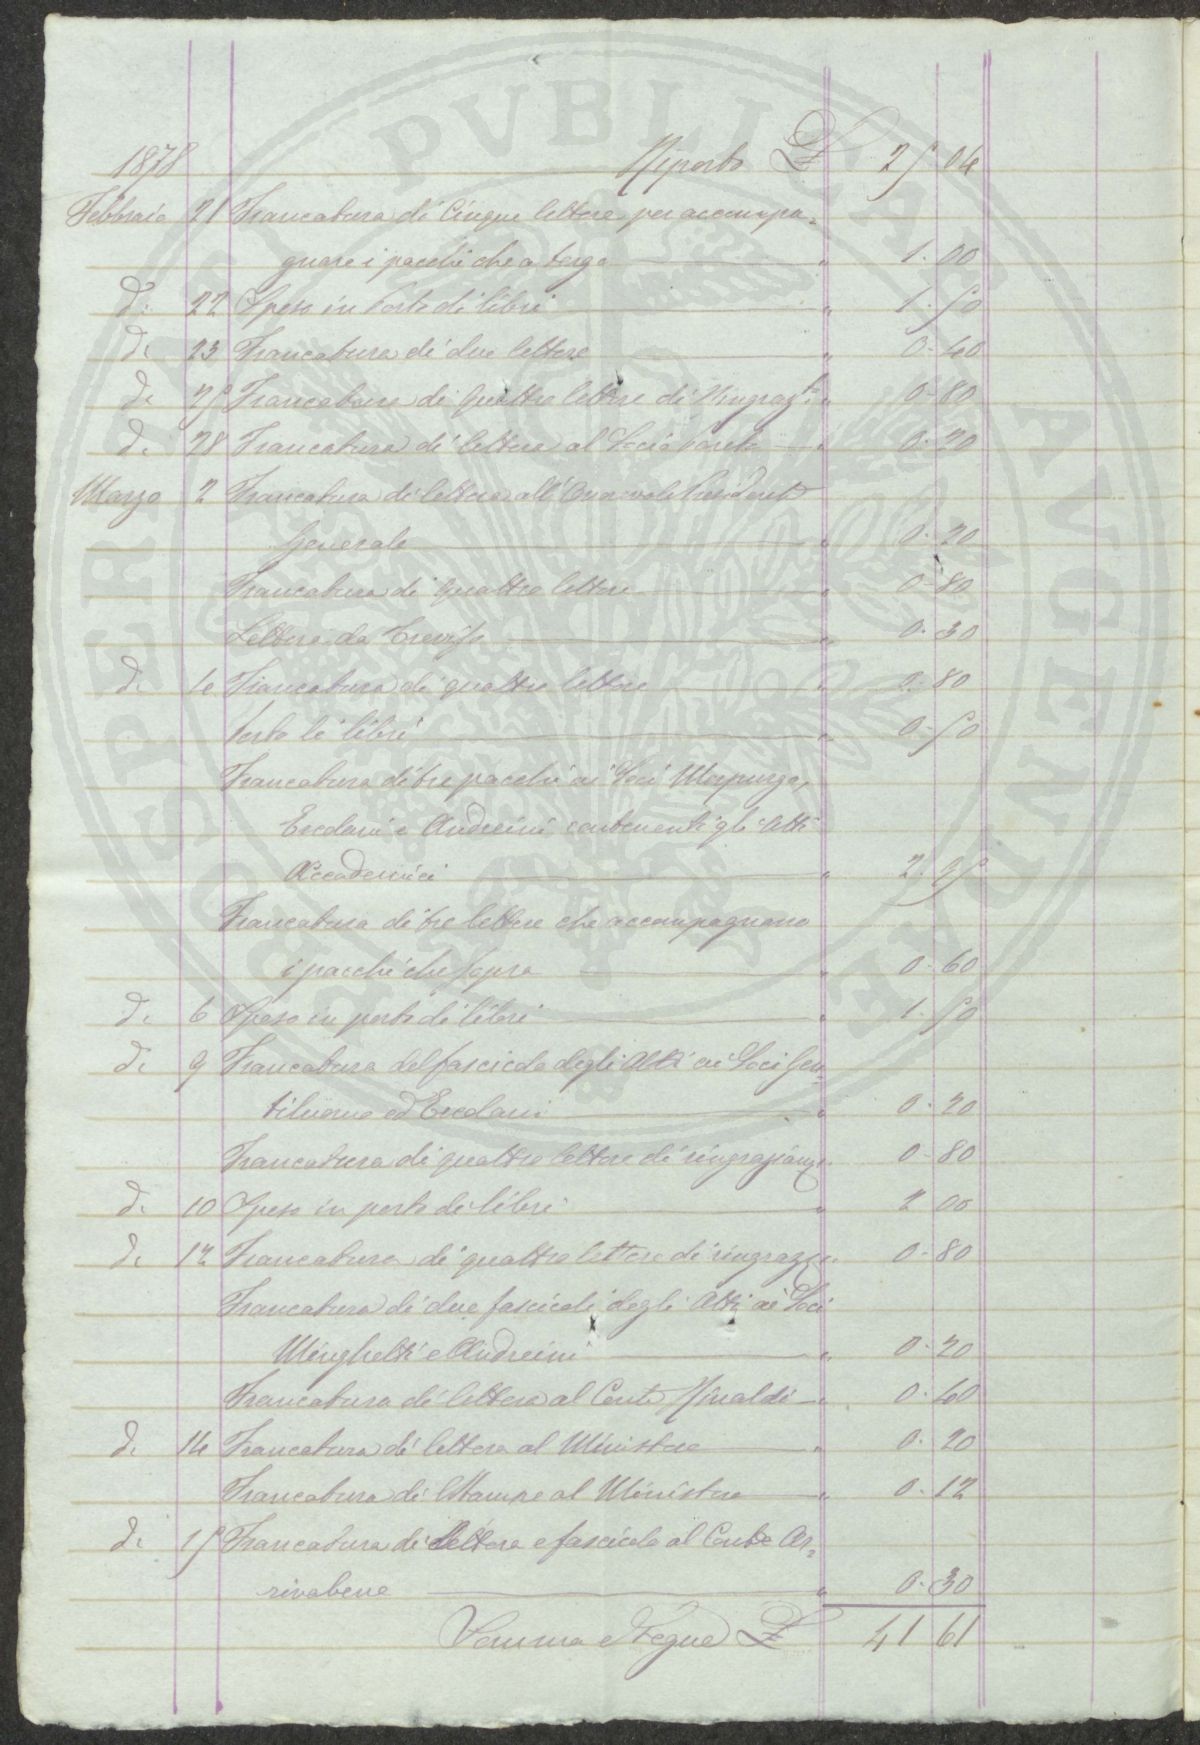 1878 Riporto £ 25 04
Febbraio 21 Francatura di Cinque lettere per accompa=
gnare i pacchi che a tergo " 1. 00
di 22 Speso in Porto di libri " 1. 50
di 23 Francatura di due lettere " 0. 40
di 25 Francatura di quattro lettere di " 0. 80
di 28 Francatura di lettera al Socio Pareto " 0. 20
Marzo 2 Francatura di lettera all' Onorevole Presidente
Generale " 0. 20
Francatura di quattro lettere " 0. 80
Lettera da Treviso " 0. 30
di 4 Francatura di quattro lettere " 0. 80
Porto di libri " 0. 50
Francatura di tre pacchi ai Soci Morpurgo,
Ercolani e Andreini contenenti gli Atti
Accademici " 2. 25
Francatura di tre lettere che accompagnano
i pacchi che sopra " 0. 60
di 6 Speso in porto di libri " 1. 50
di 9 Francatura del fascicolo degli Atti ai Soci Gen=
tiluomo ed Ercolani " 0. 20
Francatura di quattro lettere di 0. 80
di 10 Speso in porto di libri " 2 00
di 12 Francatura di quattro lettere di 0. 80
Francatura di due fascicoli degli Atti ai Soci
Minghetti e Andreini " 0. 20
Francatura di lettera al Conte Rinaldi " 0. 40
di 14 Francatura di lettera al Ministero " 0. 20
Francatura di Stampe al Ministero " 0. 12
di 15 Francatura di lettera e fascicolo al Conte Ar=
rivabene " 0. 30
Somma e Segue £ 41 61
PROSPERITATI PVBLICAE AVGENDAE